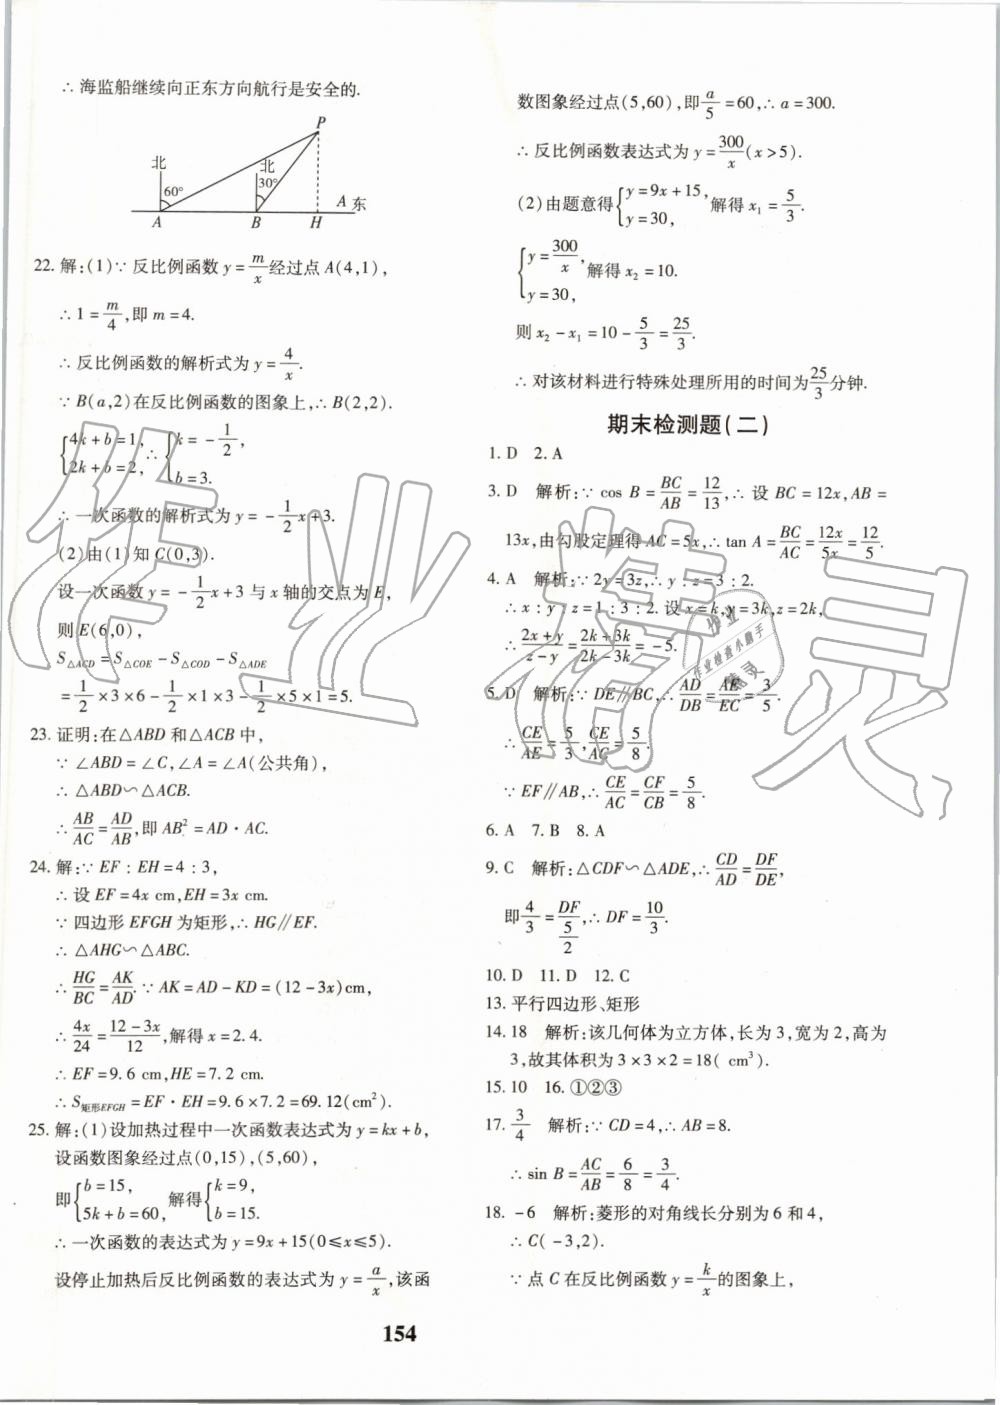 ∴海监船继续向正东方向航行是安全的.
P
北
北
60°
30°
A 东
A B H
22. 解:(1)∵反比例函数 y = m/x 经过点 A(4,1),
∴1 = m/4,即 m = 4.
∴反比例函数的解析式为 y = 4/x.
∵B(a,2)在反比例函数的图象上,∴B(2,2).
{4k + b = 1, 2k + b = 2, ∴ {k = -1/2, b = 3.
∴一次函数的解析式为 y = -1/2 x + 3.
(2)由(1)知 C(0,3).
设一次函数 y = -1/2 x + 3 与 x 轴的交点为 E,
则 E(6,0),
S△ACD = S△COE - S△COD - S△ADE
= 1/2 × 3 × 6 - 1/2 × 1 × 3 - 1/2 × 5 × 1 = 5.
23. 证明:在△ABD 和△ACB 中,
∵∠ABD = ∠C,∠A = ∠A(公共角),
∴△ABD∽△ACB.
∴AB/AC = AD/AB,即 AB² = AD · AC.
24. 解:∵EF : EH = 4 : 3,
∴设 EF = 4x cm,EH = 3x cm.
∵四边形 EFGH 为矩形,∴HG∥EF.
∴△AHG∽△ABC.
∴HG/BC = AK/AD. ∵AK = AD - KD = (12 - 3x) cm,
∴4x/24 = (12 - 3x)/12,解得 x = 2.4.
∴EF = 9.6 cm,HE = 7.2 cm.
∴S矩形EFGH = EF · EH = 9.6 × 7.2 = 69.12(cm²).
25. 解:(1)设加热过程中一次函数表达式为 y = kx + b,
设函数图象经过点(0,15),(5,60),
即{b = 15, 5k + b = 60, 解得{k = 9, b = 15.
∴一次函数的表达式为 y = 9x + 15(0≤x≤5).
设停止加热后反比例函数的表达式为 y = a/x,该函
数图象经过点(5,60),即 a/5 = 60,∴a = 300.
∴反比例函数表达式为 y = 300/x (x > 5).
(2)由题意得{y = 9x + 15, y = 30, 解得 x₁ = 5/3.
{y = 300/x, y = 30, 解得 x₂ = 10.
则 x₂ - x₁ = 10 - 5/3 = 25/3.
∴对该材料进行特殊处理所用的时间为 25/3 分钟.
期末检测题(二)
1. D 2. A
3. D 解析:∵cos B = BC/AB = 12/13,∴设 BC = 12x,AB =
13x,由勾股定理得 AC = 5x,∴tan A = BC/AC = 12x/5x = 12/5.
4. A 解析:∵2y = 3z,∴y : z = 3 : 2.
∴x : y : z = 1 : 3 : 2. 设 x = k,y = 3k,z = 2k,
∴(2x + y)/(z - y) = (2k + 3k)/(2k - 3k) = -5.
5. D 解析:∵DE∥BC,∴AD/DB = AE/EC = 3/5.
∴CE/AE = 5/3,CE/AC = 5/8.
∵EF∥AB,∴CE/AC = CF/CB = 5/8.
6. A 7. B 8. A
9. C 解析:△CDF∽△ADE,∴CD/AD = DF/DE,
即 4/3 = DF/(5/2),∴DF = 10/3.
10. D 11. D 12. C
13. 平行四边形、矩形
14. 18 解析:该几何体为立方体,长为 3,宽为 2,高为
3,故其体积为 3 × 3 × 2 = 18( cm³).
15. 10 16. ①②③
17. 3/4 解析:∵CD = 4,∴AB = 8.
∴sin B = AC/AB = 6/8 = 3/4.
18. -6 解析:菱形的对角线长分别为 6 和 4,
∴C( -3,2).
∵点 C 在反比例函数 y = k/x 的图象上,
154
作业精灵
作业
作业检查小助手
精灵